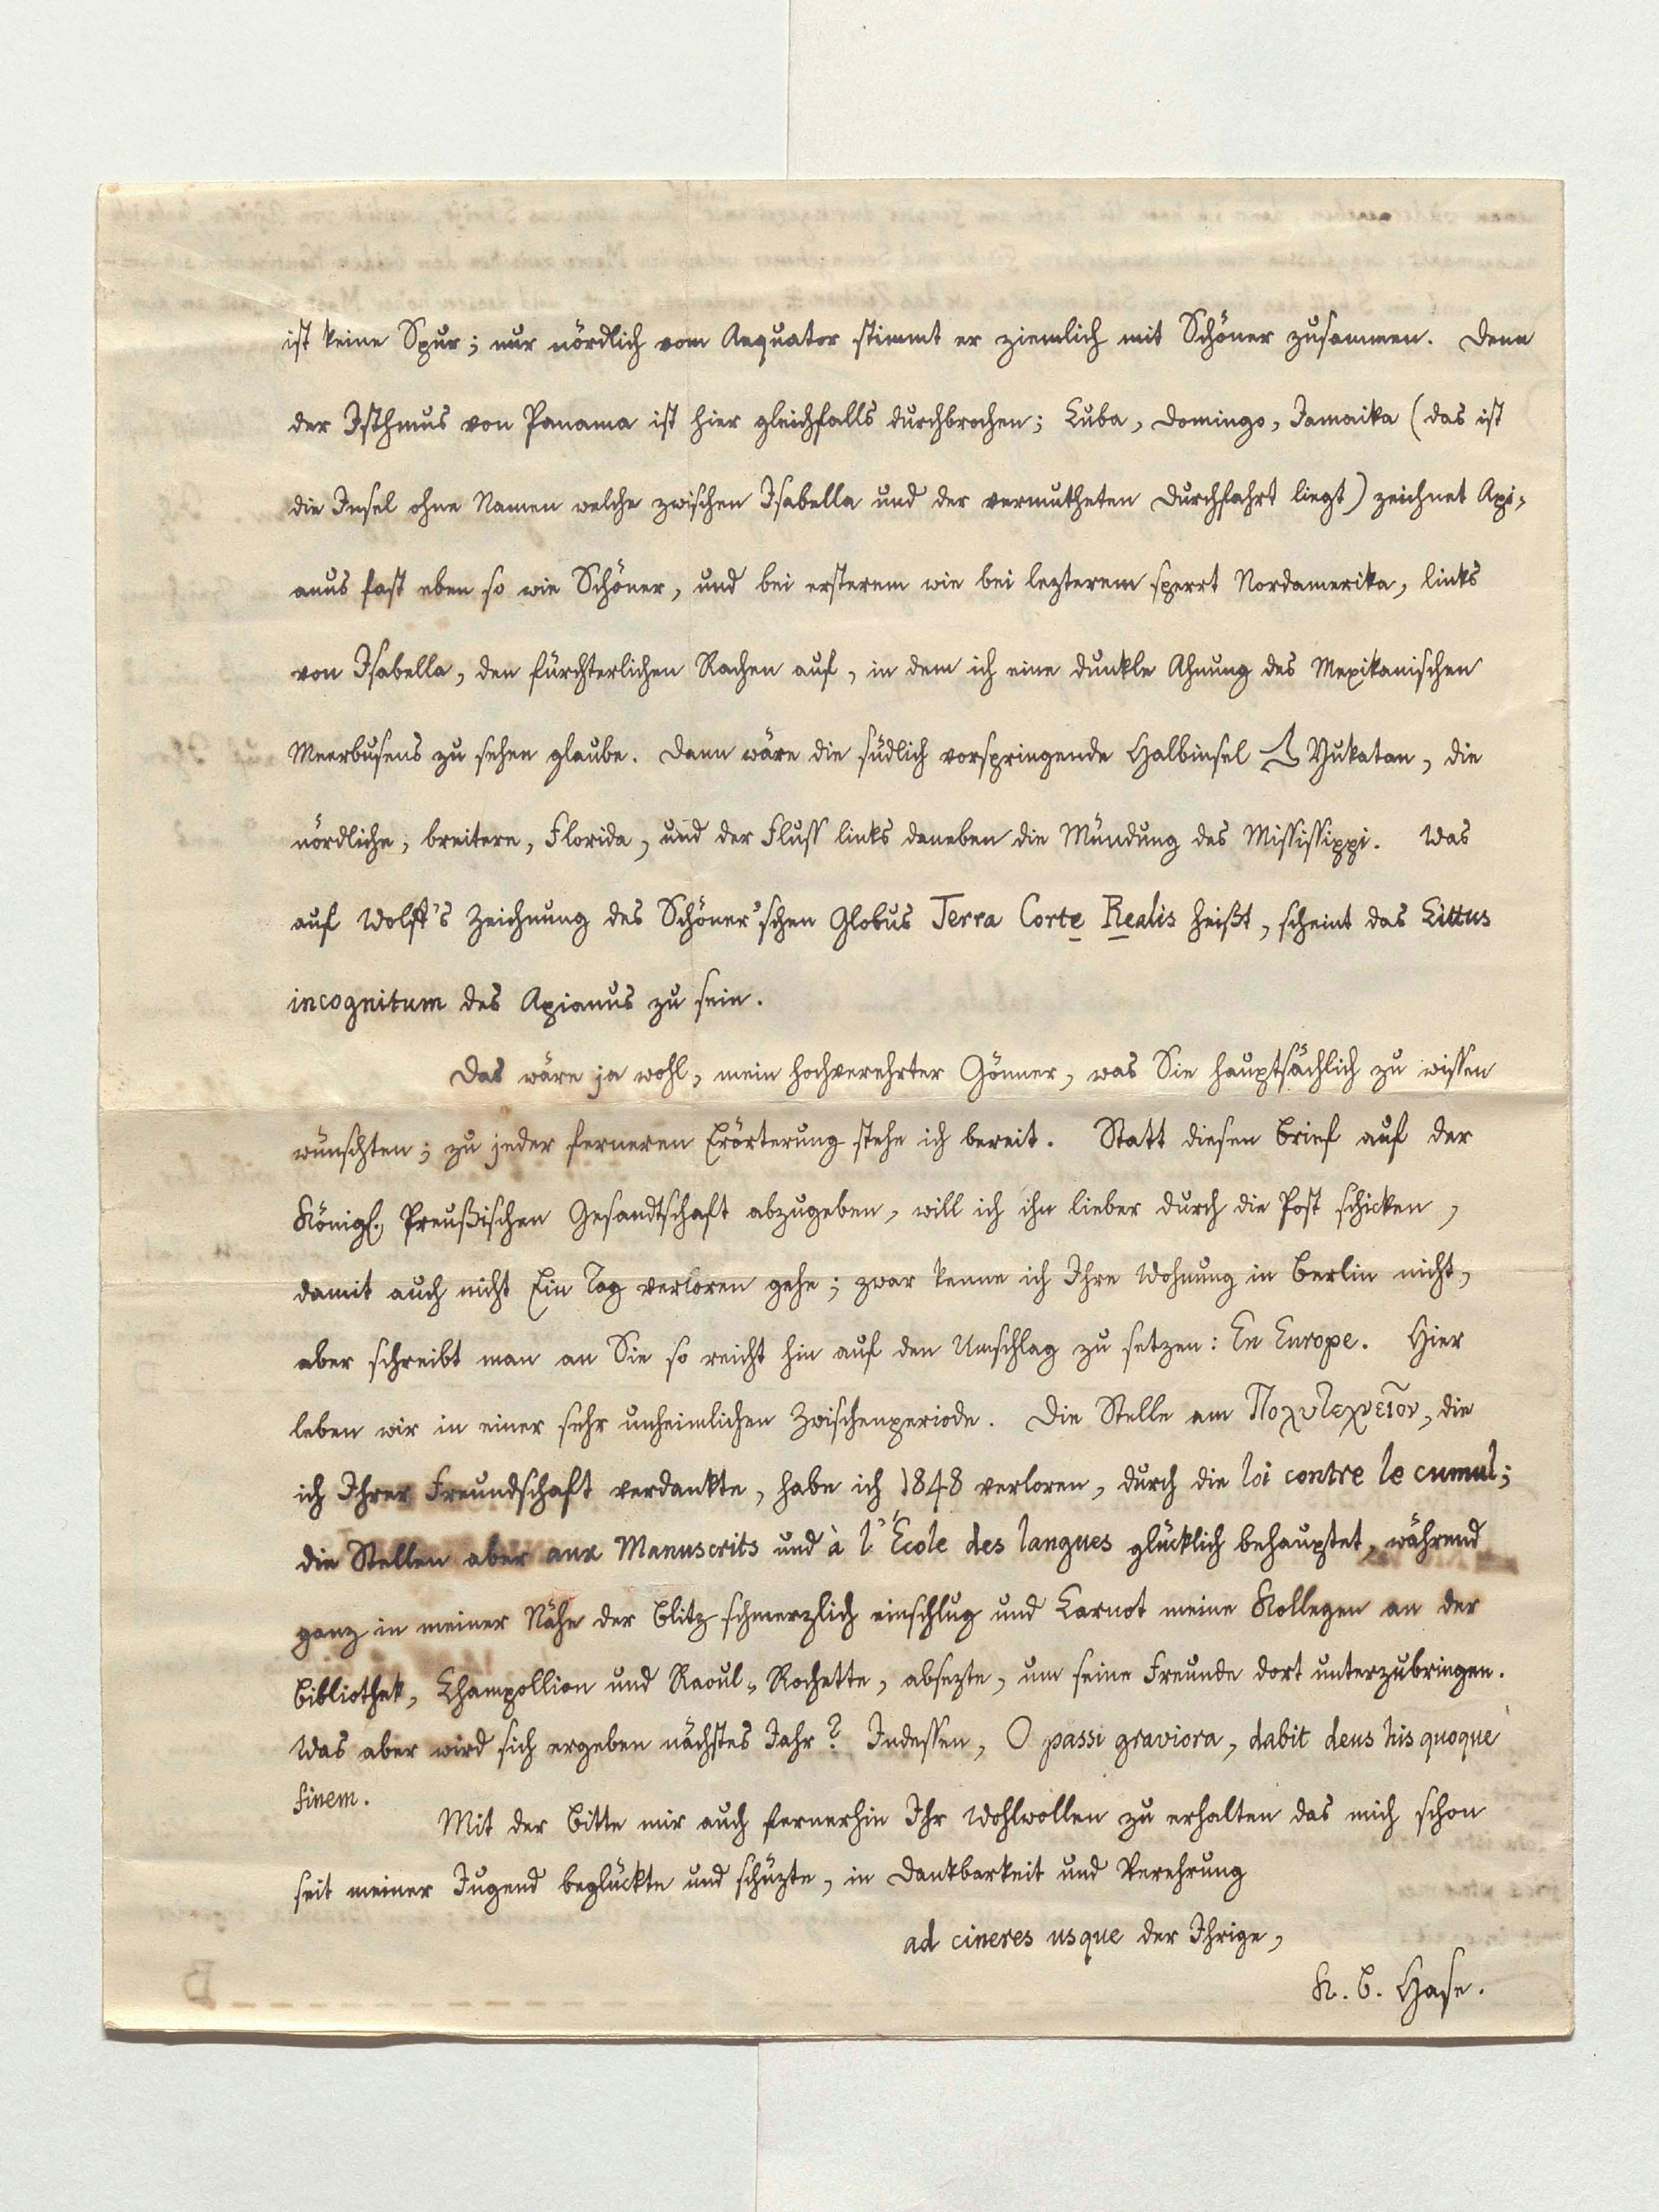 ist keine Spur; nur nördlich vom Aequator stimmt er ziemlich mit Schöner zusammen. Denn
der Isthmus von Panama ist hier gleichfalls durchbrochen; Cuba, Domingo, Jamaika (das ist
die Insel ohne Namen welche zwischen Isabella und der vermutheten Durchfahrt liegt) zeichnet Api-
anus fast eben so wie Schöner, und bei ersterem wie bei lezterem sperrt Nordamerika, links
von Isabella, den fürchterlichen Rachen auf, in dem ich eine dunkle Ahnung des Mexikanischen
Meerbusens zu sehen glaube. Dann wäre die südlich vorspringende Halbinsel Yukatan, die
nördliche, breitere, Florida, und der Fluss links daneben die Mündung des Missisippi. Was
auf Wolff's Zeichnung des Schöner'schen Globus Terra Corte Realis heißt, scheint das Littus
incognitum des Apianus zu sein.
Das wäre ja wohl, mein hochverehrter Gönner, was Sie hauptsächlich zu wissen
wünschten; zu jeder ferneren Erörterung stehe ich bereit. Statt diesen Brief auf der
Königl. Preußischen Gesandtschaft abzugeben, will ich ihn lieber durch die Post schicken,
damit auch nicht Ein Tag verloren gehe; zwar kenne ich Ihre Wohnung in Berlin nicht,
aber schreibt man an Sie so reicht hin auf den Umschlag zu setzen: En Europe. Hier
leben wir in einer sehr unheimlichen Zwischenperiode. Die Stelle am Πολυτεχνεῖον, die
ich Ihrer Freundschaft verdankte, habe ich 1848 verloren, durch die loi contre le cumul;
die Stellen aber aux Manuscrits und à l'École des langues glücklich behauptet, während
ganz in meiner Nähe der Blitz schmerzlich einschlug und Carnot meine Kollegen an der
Bibliothek, Champollion und Raoul-Rochette, absezte, um seine Freunde dort unterzubringen.
Was aber wird sich ergeben nächstes Jahr? Indessen, O passi graviora, dabit deus his quoque
finem.
Mit der Bitte mir auch fernerhin Ihr Wohlwollen zu erhalten das mich schon
seit meiner Jugend beglückte und schüzte, in Dankbarkeit und Verehrung
ad cineres usque der Ihrige,
K. B. Hase.